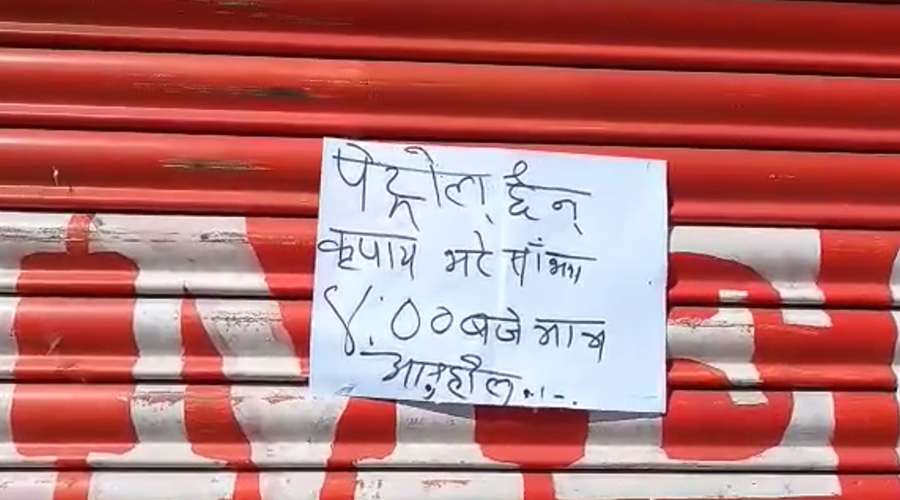 पेट्रोल् छैन्
कृपाय भरे साँझमा
४:०० बजे मात्र
आउहोल...